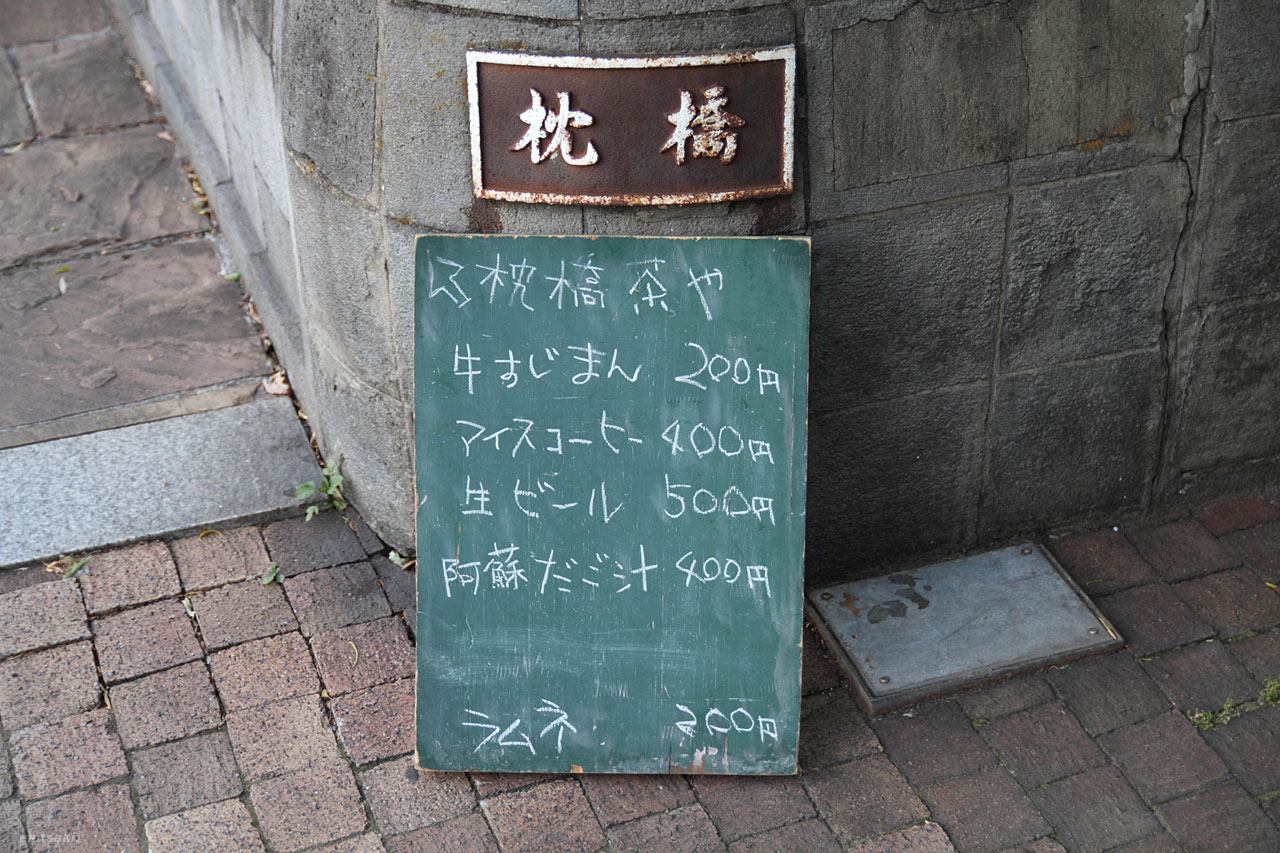 枕橋
枕橋茶や
牛すじまん 200円
アイスコーヒー 400円
生ビール 500円
阿蘇だご汁 400円
ラムネ 200円